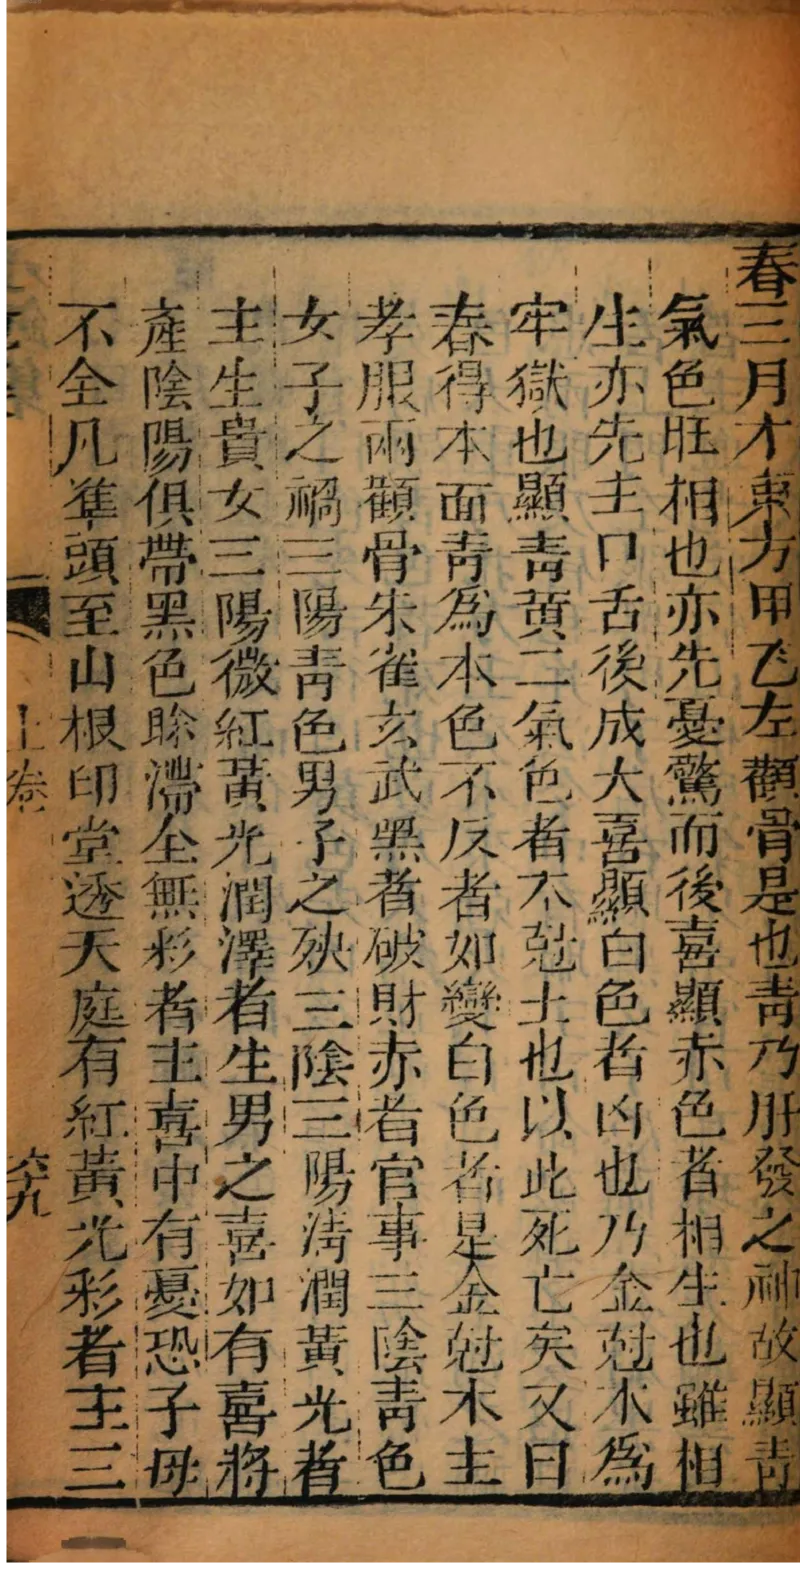 春三月才東方甲乙左顴骨是也青乃肝發之神故顯青
氣色旺相也亦先憂驚而後喜顯赤色者相生也雖相
生亦先主口舌後成大喜顯白色者凶也乃金尅木為
牢獄也顯青黃二氣色者不尅土也以此死亡矣又曰
春得本面青為本色不反者如變白色者是金尅木主
孝服兩顴骨朱雀玄武黑者破財赤者官事三陰青色
女子之禍三陽青色男子之殃三陰三陽淸潤黃光者
主生貴女三陽微紅黃光潤澤者生男之喜如有喜將
產陰陽俱帶黑色昣滯全無彩者主喜中有憂恐子母
不全凡準頭至山根印堂透天庭有紅黃光彩者主三
上卷
六九